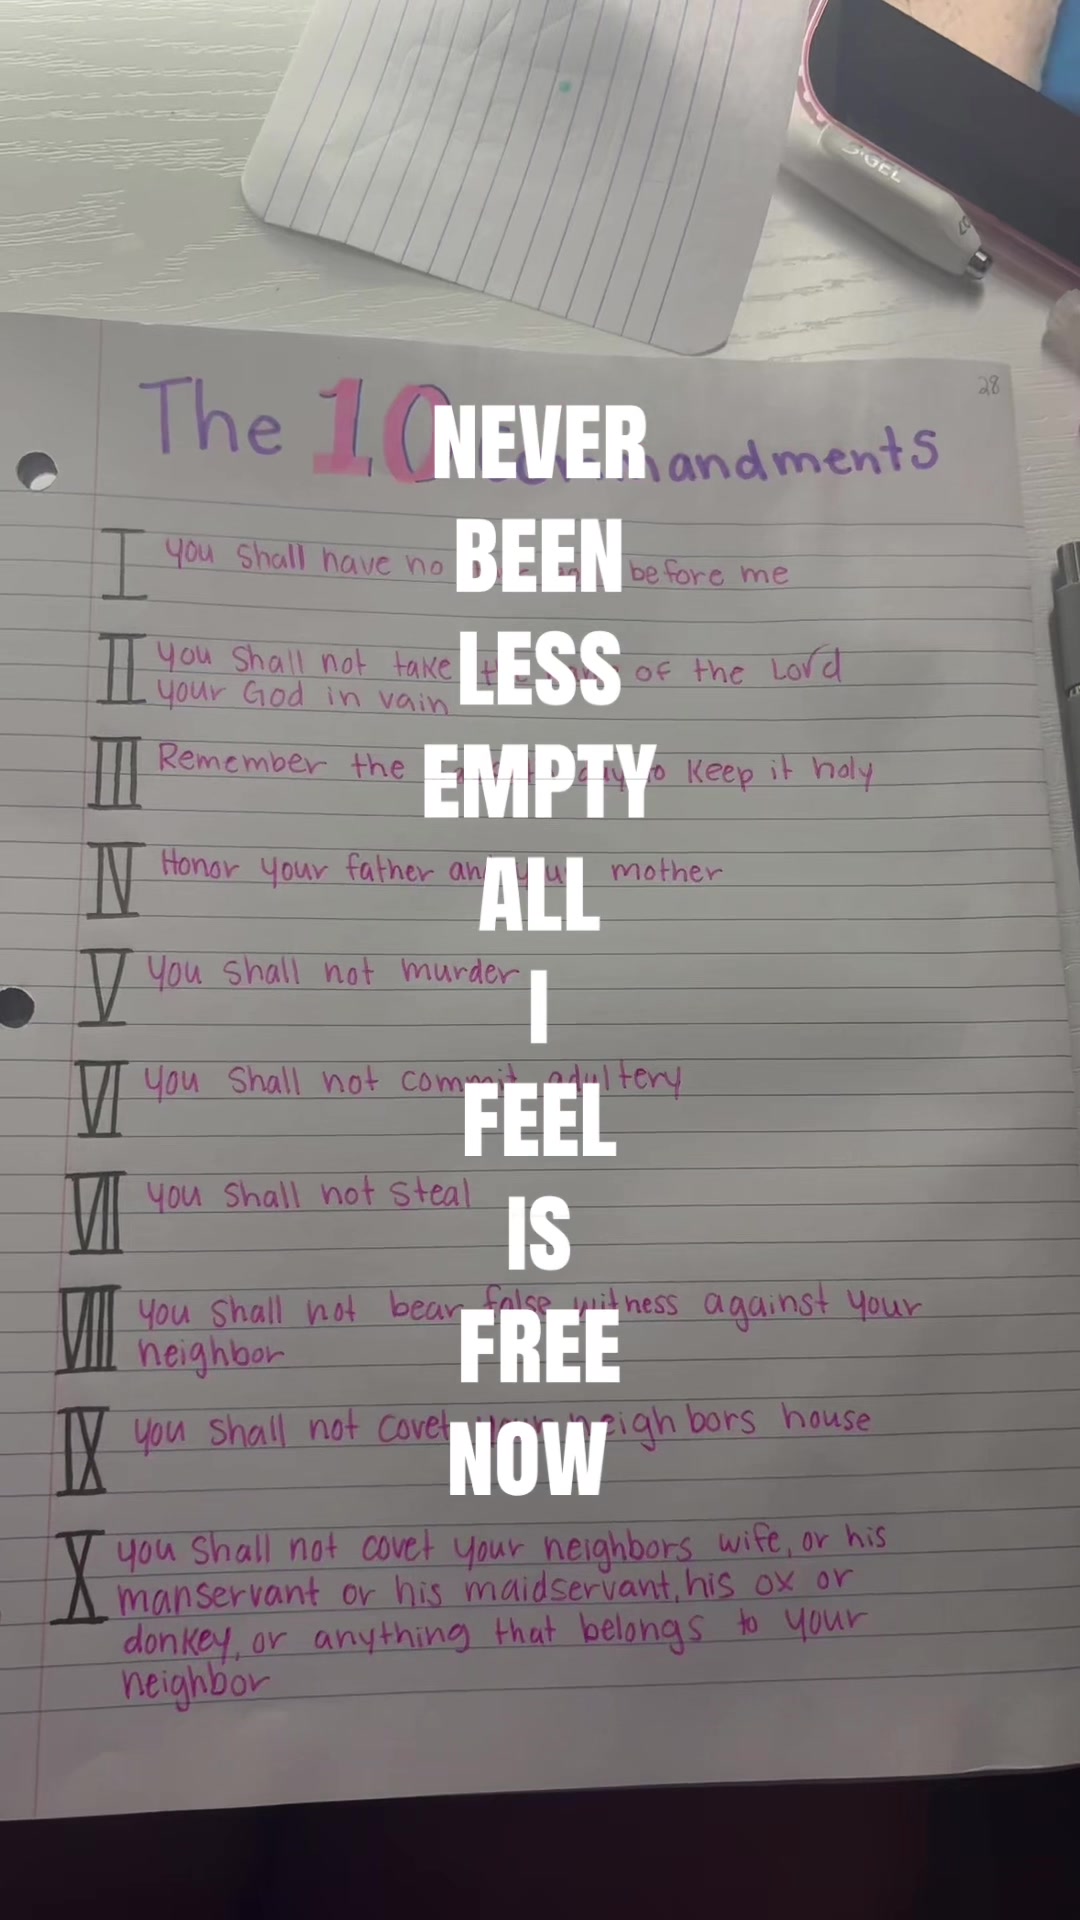 S·GEL
28
The 10 Commandments
I you shall have no before me
II you shall not take the name of the Lord
your God in vain
III Remember the to Keep it holy
IV Honor your father and your mother
V you shall not murder
VI you shall not commit adultery
VII you shall not steal
VIII you shall not bear false witness against your
neighbor
IX you shall not covet your neighbors house
X you shall not covet your neighbors wife, or his
manservant or his maidservant, his ox or
donkey, or anything that belongs to your
neighbor
NEVER
BEEN
LESS
EMPTY
ALL
I
FEEL
IS
FREE
NOW